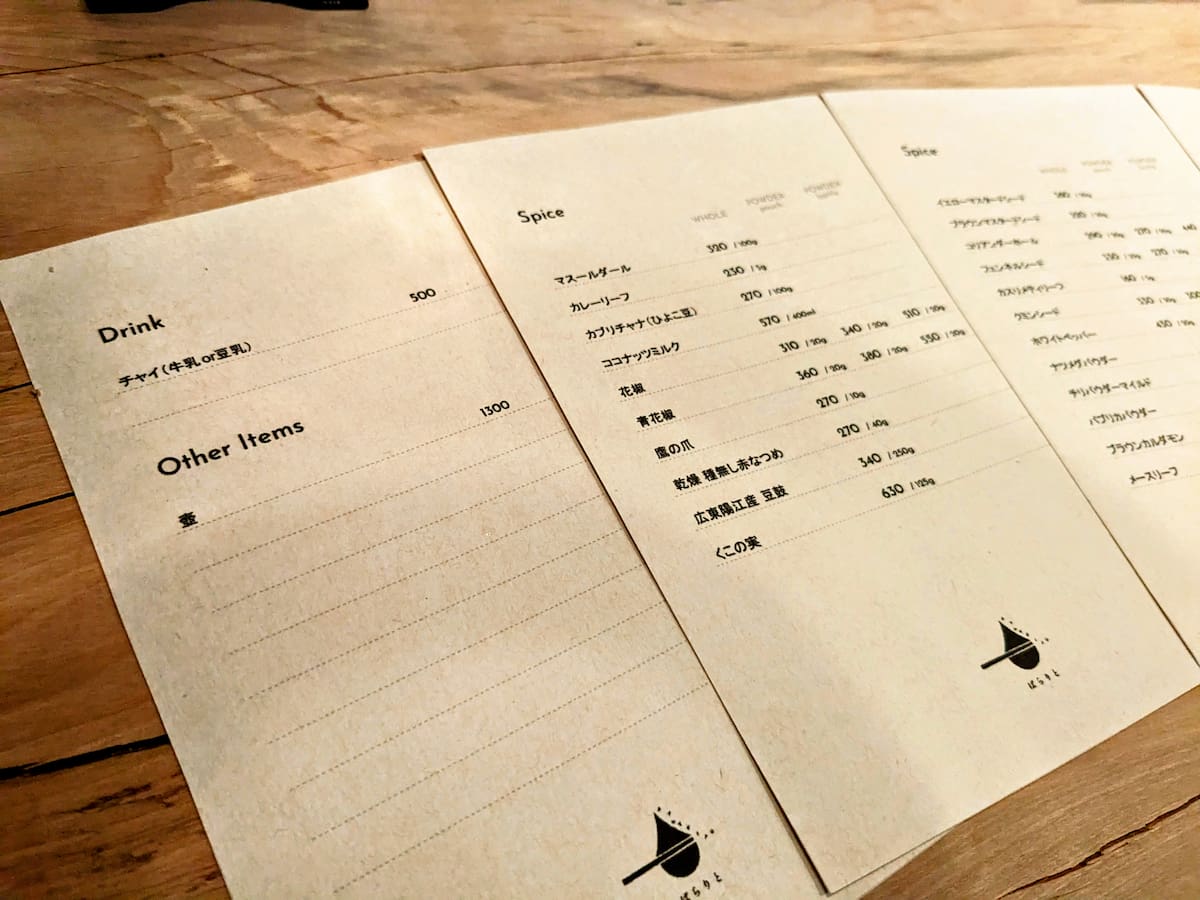 Drink
チャイ(牛乳or豆乳) 500
Other Items
壺 1300
ぱらりと
Spice
WHOLE POWDER pouch POWDER bottle
マスールダール 320 /100g
カレーリーフ 230 /5g
カブリチャナ(ひよこ豆) 270 /100g
ココナッツミルク 570 /400ml
花椒 310 /20g 340 /20g 510 /20g
青花椒 360 /20g 380 /20g 530 /20g
鷹の爪 270 /10g
乾燥 種無し赤なつめ 270 /40g
広東陽江産 豆鼓 340 /250g
くこの実 630 /125g
ぱらりと
Spice
WHOLE POWDER POWDER
イエローマスタードシード
ブラウンマスタードシード
コリアンダーホール
フェンネルシード
カスリメティリーフ
クミンシード
ホワイトペッパー
ナツメグパウダー
チリパウダーマイルド
パプリカパウダー
ブラウンカルダモン
メースリーフ